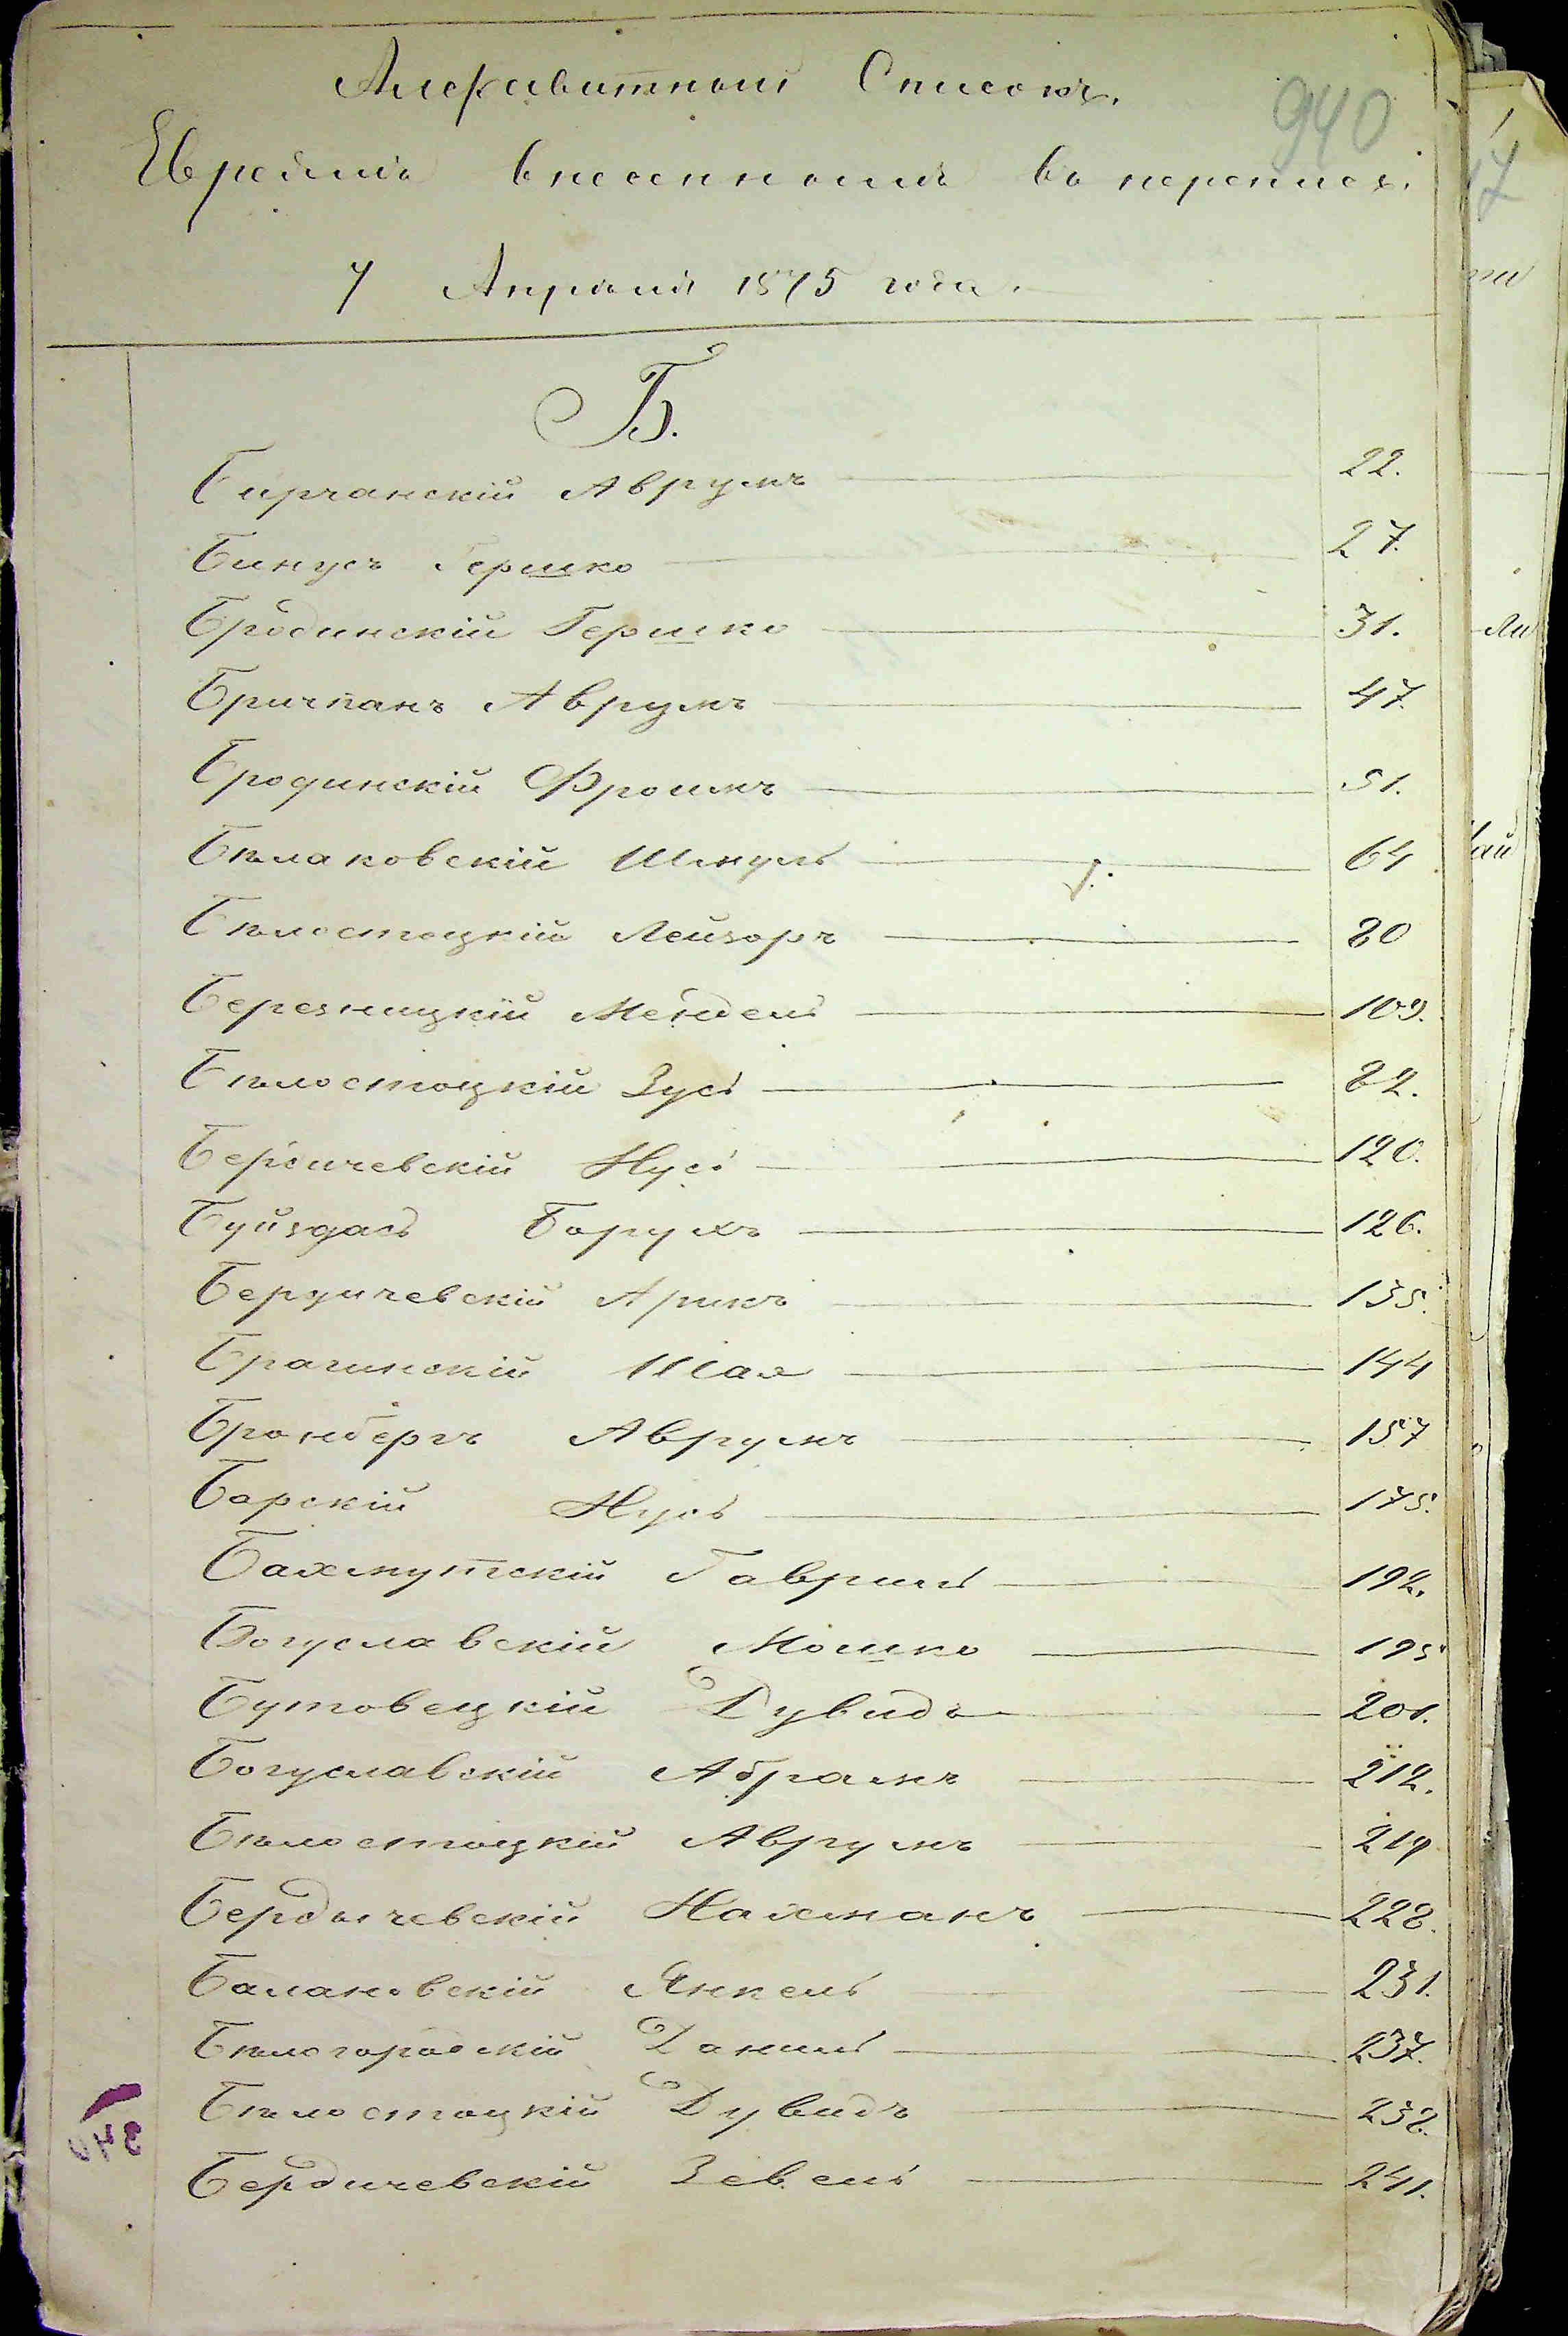 Алфавитный Списокъ.
940
Евреямъ внесеннымъ въ перепись
7 Апрѣля 1875 года.
Б.
Бирчанскій Аврумъ 22.
Бинусъ Гершко 27.
Бродинскій Гершко 31.
Бричпанъ Аврумъ 47.
Бродинскій Фроимъ 51.
Бѣлаковскій Шмуль 64
Бѣлостоцкій Лейзоръ 80
Березницкій Мендель 109.
Бѣлостоцкій Зусь 82.
Бердичевскій Нусь 120.
Борухъ 126.
Бердичевскій Арикъ 135.
Брагинскій Шая 144
Бронбергъ Аврумъ 157
Барскій Нусь 175.
Бахмутскій Гаврилъ 192.
Богуславскій Мошко 195
Бутовецкій Дувидъ 201.
Богуславскій Абрамъ 212.
Бѣлостоцкій Аврумъ 219
Бердычевскій Нахманъ 228.
Балановскій Янкель 231.
Бѣлогородскій Данилъ 237.
Бѣлостоцкій Дувидъ 238.
Бердичевскій Зевель 241.